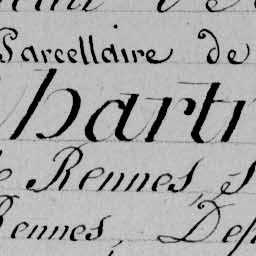 Parcellaire de
Chartr
e Rennes, s
Rennes, Dep